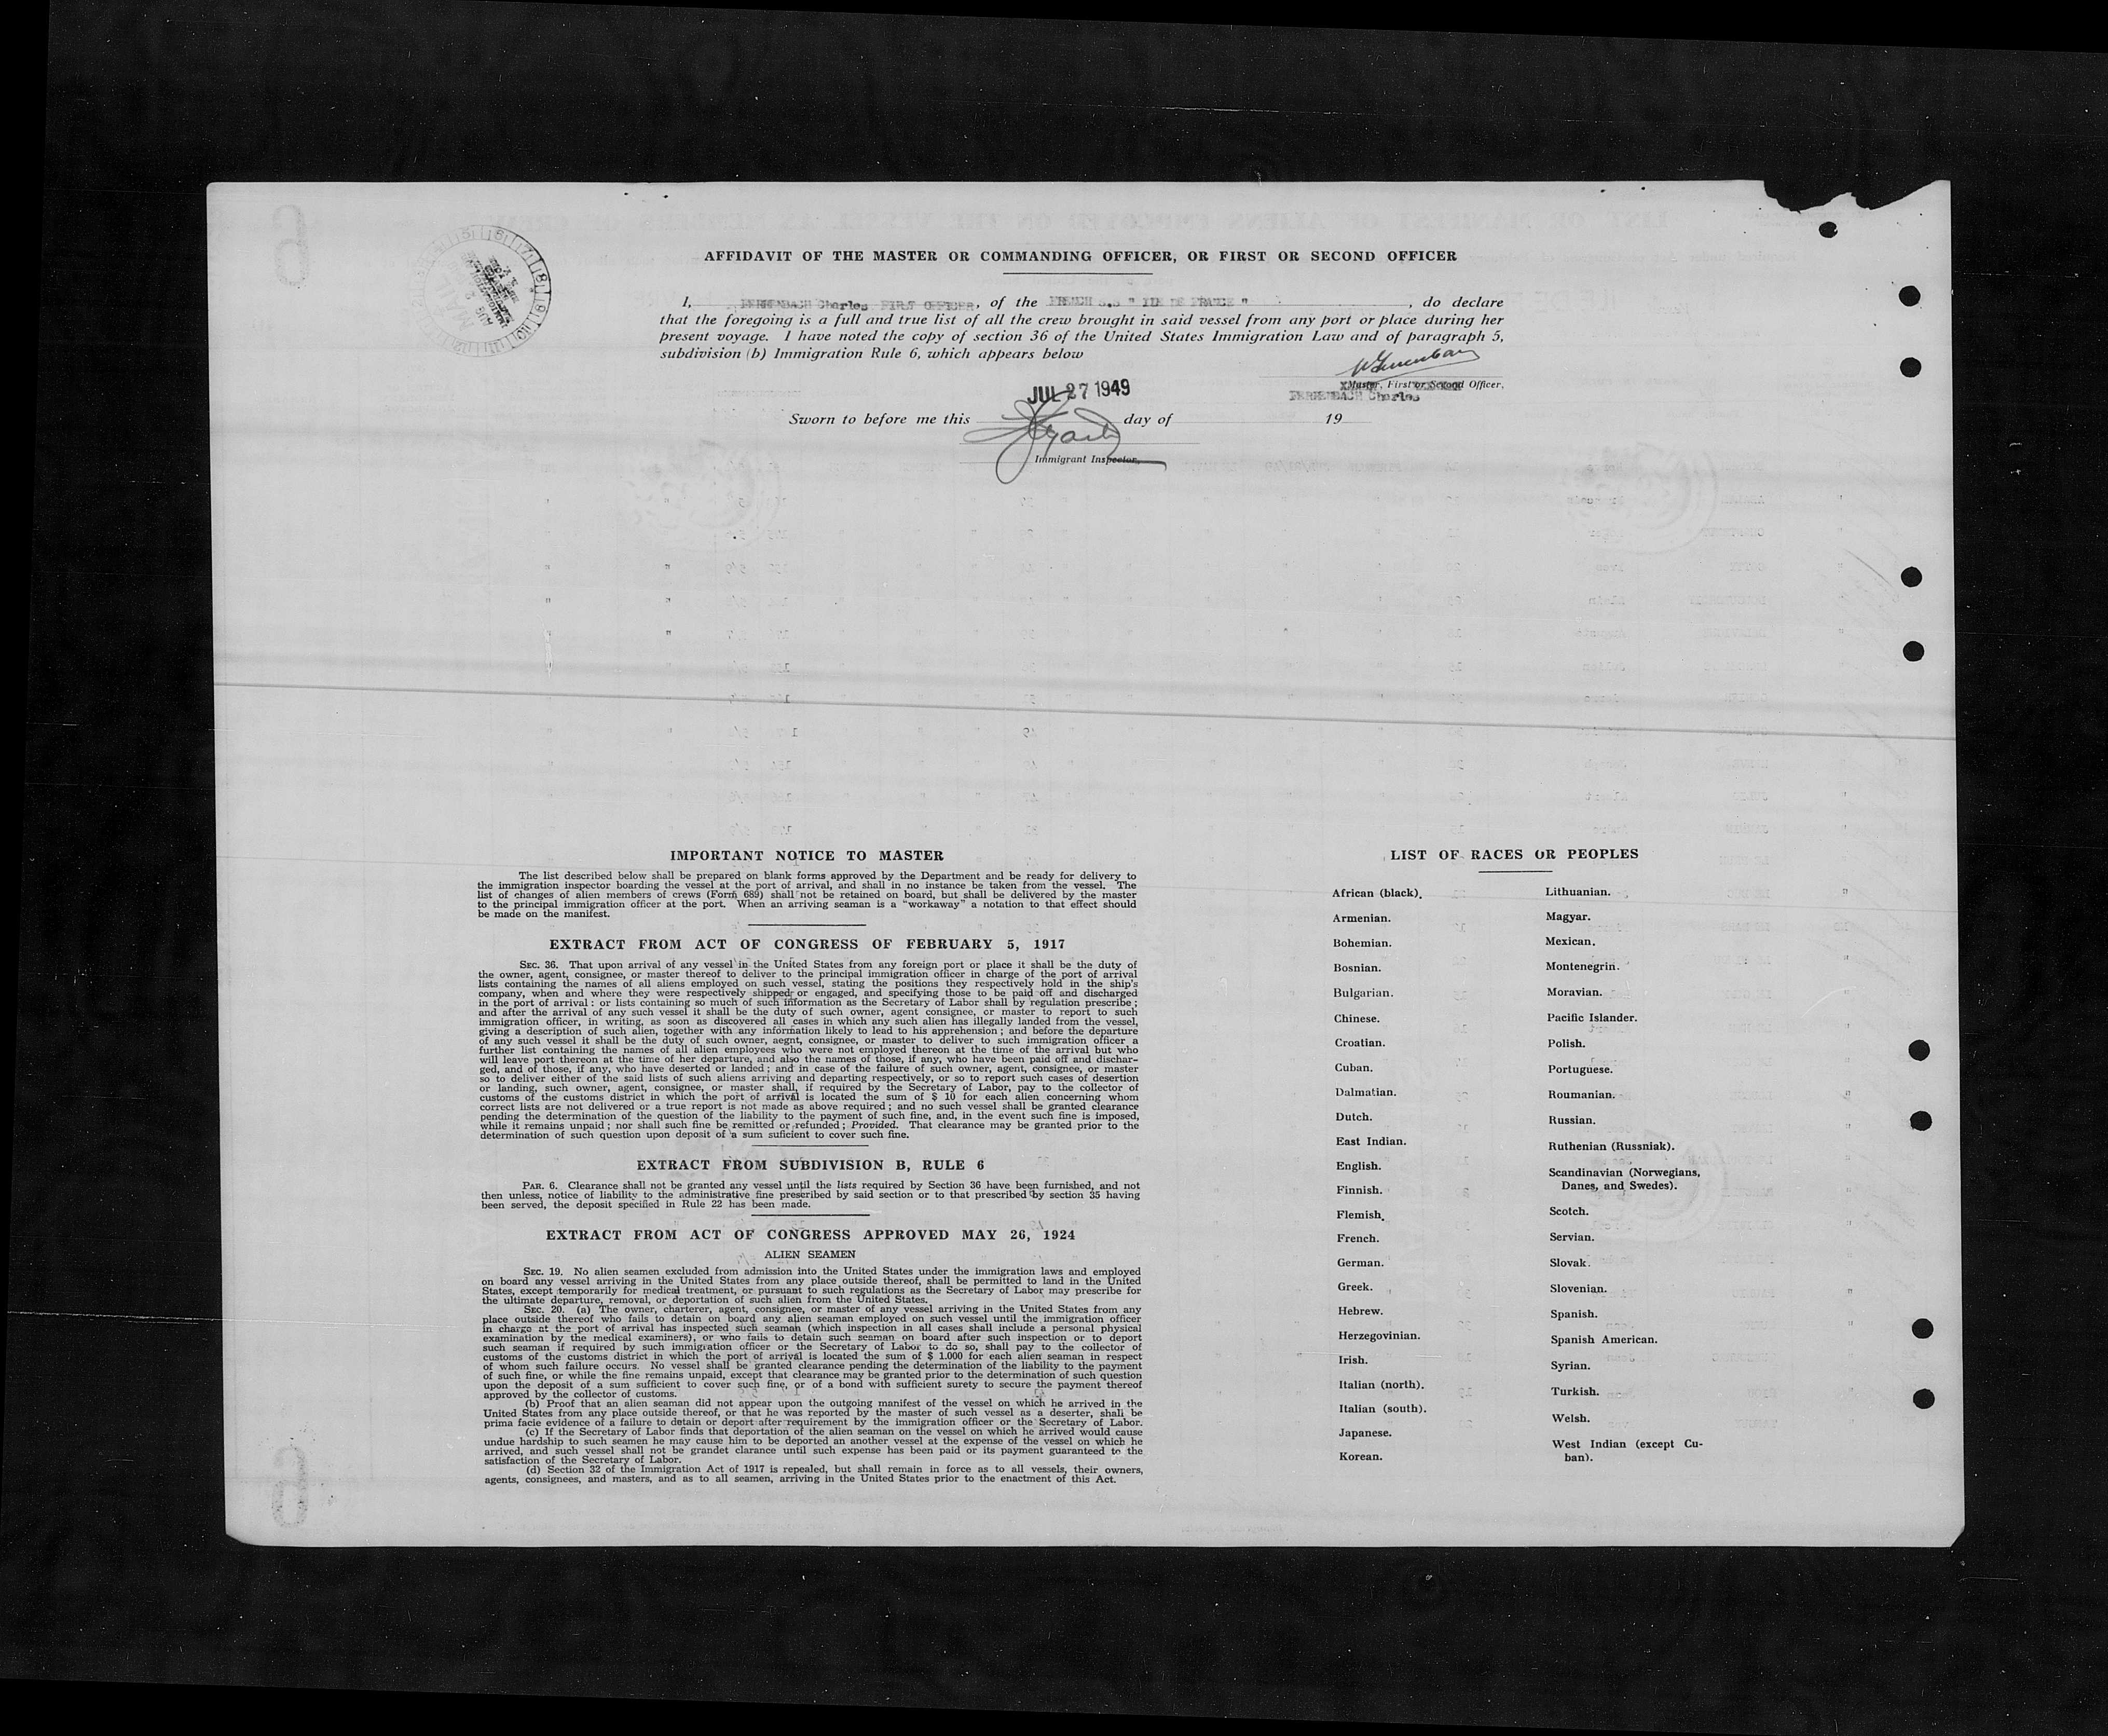 AFFIDAVIT OF THE MASTER OR COMMANDING OFFICER, OR FIRST OR SECOND OFFICER
I, Charles FIRST OFFICER, of the FRENCH S.S " ILE DE FRANCE " , do declare
that the foregoing is a full and true list of all the crew brought in said vessel from any port or place during her
present voyage. I have noted the copy of section 36 of the United States Immigration Law and of paragraph 5,
subdivision (b) Immigration Rule 6, which appears below
Master, First or Second Officer,
Charles
JUL 27 1949
Sworn to before me this day of 19
Immigrant Inspector.
IMPORTANT NOTICE TO MASTER
The list described below shall be prepared on blank forms approved by the Department and be ready for delivery to
the immigration inspector boarding the vessel at the port of arrival, and shall in no instance be taken from the vessel. The
list of changes of alien members of crews (Form 689) shall not be retained on board, but shall be delivered by the master
to the principal immigration officer at the port. When an arriving seaman is a "workaway" a notation to that effect should
be made on the manifest.
EXTRACT FROM ACT OF CONGRESS OF FEBRUARY 5, 1917
SEC. 36. That upon arrival of any vessel in the United States from any foreign port or place it shall be the duty of
the owner, agent, consignee, or master thereof to deliver to the principal immigration officer in charge of the port of arrival
lists containing the names of all aliens employed on such vessel, stating the positions they respectively hold in the ship's
company, when and where they were respectively shipped or engaged, and specifying those to be paid off and discharged
in the port of arrival: or lists containing so much of such information as the Secretary of Labor shall by regulation prescribe;
and after the arrival of any such vessel it shall be the duty of such owner, agent consignee, or master to report to such
immigration officer, in writing, as soon as discovered all cases in which any such alien has illegally landed from the vessel,
giving a description of such alien, together with any information likely to lead to his apprehension; and before the departure
of any such vessel it shall be the duty of such owner, aegnt, consignee, or master to deliver to such immigration officer a
further list containing the names of all alien employees who were not employed thereon at the time of the arrival but who
will leave port thereon at the time of her departure, and also the names of those, if any, who have been paid off and dischar-
ged, and of those, if any, who have deserted or landed; and in case of the failure of such owner, agent, consignee, or master
so to deliver either of the said lists of such aliens arriving and departing respectively, or so to report such cases of desertion
or landing, such owner, agent, consignee, or master shall, if required by the Secretary of Labor, pay to the collector of
customs of the customs district in which the port of arrival is located the sum of $ 10 for each alien concerning whom
correct lists are not delivered or a true report is not made as above required; and no such vessel shall be granted clearance
pending the determination of the question of the liability to the payment of such fine, and, in the event such fine is imposed,
while it remains unpaid; nor shall such fine be remitted or refunded; Provided. That clearance may be granted prior to the
determination of such question upon deposit of a sum suficient to cover such fine.
EXTRACT FROM SUBDIVISION B, RULE 6
PAR. 6. Clearance shall not be granted any vessel until the lists required by Section 36 have been furnished, and not
then unless, notice of liability to the administrative fine prescribed by said section or to that prescribed by section 35 having
been served, the deposit specified in Rule 22 has been made.
EXTRACT FROM ACT OF CONGRESS APPROVED MAY 26, 1924
ALIEN SEAMEN
SEC. 19. No alien seamen excluded from admission into the United States under the immigration laws and employed
on board any vessel arriving in the United States from any place outside thereof, shall be permitted to land in the United
States, except temporarily for medical treatment, or pursuant to such regulations as the Secretary of Labor may prescribe for
the ultimate departure, removal, or deportation of such alien from the United States.
SEC. 20. (a) The owner, charterer, agent, consignee, or master of any vessel arriving in the United States from any
place outside thereof who fails to detain on board any alien seaman employed on such vessel until the immigration officer
in charge at the port of arrival has inspected such seaman (which inspection in all cases shall include a personal physical
examination by the medical examiners), or who fails to detain such seaman on board after such inspection or to deport
such seaman if required by such immigration officer or the Secretary of Labor to do so, shall pay to the collector of
customs of the customs district in which the port of arrival is located the sum of $ 1.000 for each alien seaman in respect
of whom such failure occurs. No vessel shall be granted clearance pending the determination of the liability to the payment
of such fine, or while the fine remains unpaid, except that clearance may be granted prior to the determination of such question
upon the deposit of a sum sufficient to cover such fine, or of a bond with sufficient surety to secure the payment thereof
approved by the collector of customs.
(b) Proof that an alien seaman did not appear upon the outgoing manifest of the vessel on which he arrived in the
United States from any place outside thereof, or that he was reported by the master of such vessel as a deserter, shall be
prima facie evidence of a failure to detain or deport after requirement by the immigration officer or the Secretary of Labor.
(c) If the Secretary of Labor finds that deportation of the alien seaman on the vessel on which he arrived would cause
undue hardship to such seamen he may cause him to be deported an another vessel at the expense of the vessel on which he
arrived, and such vessel shall not be grandet clarance until such expense has been paid or its payment guaranteed to the
satisfaction of the Secretary of Labor.
(d) Section 32 of the Immigration Act of 1917 is repealed, but shall remain in force as to all vessels, their owners,
agents, consignees, and masters, and as to all seamen, arriving in the United States prior to the enactment of this Act.
LIST OF RACES OR PEOPLES
African (black).
Armenian.
Bohemian.
Bosnian.
Bulgarian.
Chinese.
Croatian.
Cuban.
Dalmatian.
Dutch.
East Indian.
English.
Finnish.
Flemish.
French.
German.
Greek.
Hebrew.
Herzegovinian.
Irish.
Italian (north).
Italian (south).
Japanese.
Korean.
Lithuanian.
Magyar.
Mexican.
Montenegrin.
Moravian.
Pacific Islander.
Polish.
Portuguese.
Roumanian.
Russian.
Ruthenian (Russniak).
Scandinavian (Norwegians,
Danes, and Swedes).
Scotch.
Servian.
Slovak.
Slovenian.
Spanish.
Spanish American.
Syrian.
Turkish.
Welsh.
West Indian (except Cu-
ban).